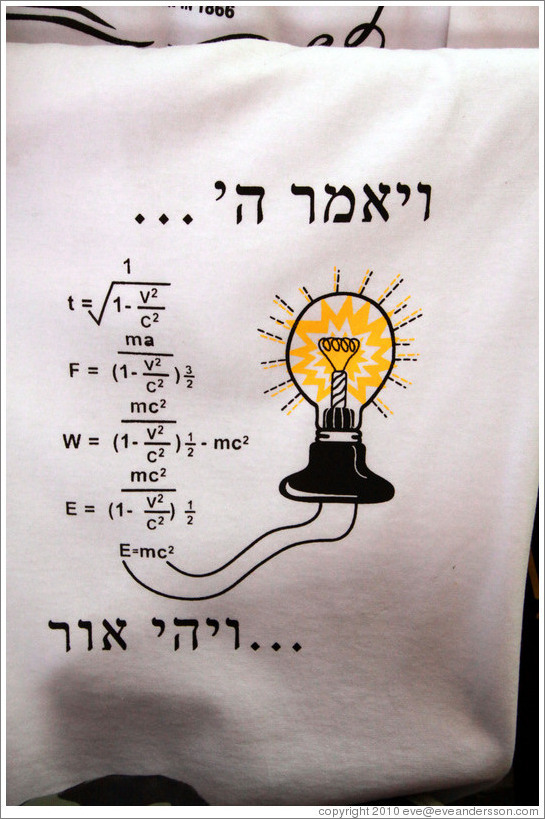 in 1866
ויאמר ה' ...
t = 1 / √(1- v²/c²)
F = ma / (1- v²/c²) 3/2
W = mc² / (1- v²/c²) 1/2 - mc²
E = mc² / (1- v²/c²) 1/2
E=mc²
...ויהי אור
copyright 2010 eve@eveandersson.com